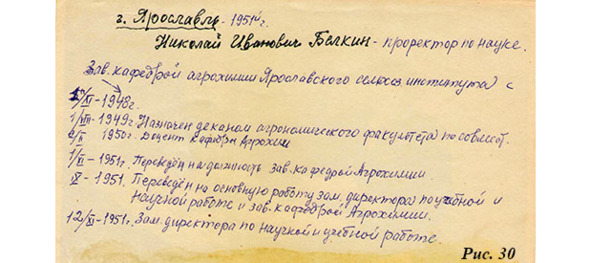 г. Ярославль - 1951 г.
Николай Иванович Белкин - проректор по науке.
Зав. кафедрой агрохимии Ярославского сельхоз. института с
/XI - 1948г.
1/VIII - 1949г. Назначен деканом агрономического факультета по совмест.
6/II 1950г. Доцент кафедры Агрохимии
1/VI - 1951г. Переведён на должность зав. кафедрой Агрохимии.
V - 1951. Переведён на основную работу зам. директора по учебной и
научной работе и зав. кафедрой Агрохимии.
12/XI - 1951г. Зам. директора по научной и учебной работе.
Рис. 30